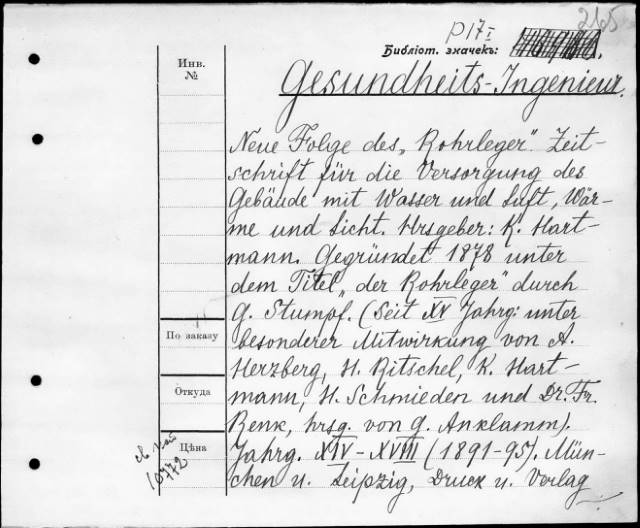 265
P17 I
Библіот. значекъ:
Gesundheits-Ingenieur.
Инв.
№
Neue Folge des „Rohrleger". Zeit-
schrift für die Versorgung des
Gebäude mit Wasser und Luft, Wär-
me und Licht. Hrsgeber: K. Hart-
mann. Gegründet 1878 unter
dem Titel „der Rohrleger" durch
G. Stumpf. (Seit XV Jahrg: unter
По заказу
besonderer Mitwirkung von A.
Herzberg, H. Ritschel, K. Hart-
Откуда
mann, H. Schmieden und Dr. Fr.
Renk, hrsg. von G. Anklamm).
Цѣна
Jahrg. XIV-XVIII (1891-95). Mün-
chen u. Leipzig, Druck u. Verlag
10772